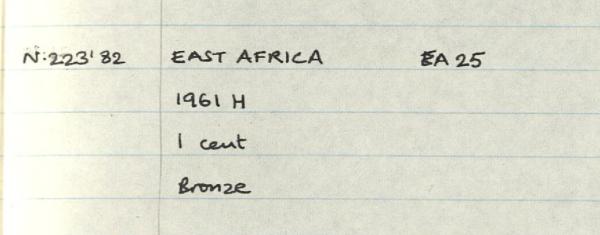 N:223'82 EAST AFRICA EA 25
1961 H
1 cent
Bronze